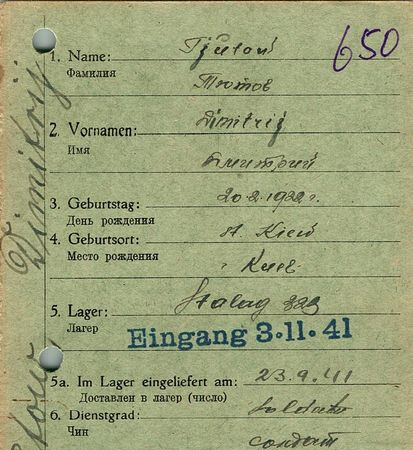 650
1. Name:
Фамилия
Тютов
2. Vornamen: Dimitrij
Имя
Дмитрий
3. Geburtstag: 20.2.1922 г.
День рождения
4. Geburtsort: st. Kiew
Место рождения
г. Киев
5. Lager: Stalag
Лагер
Eingang 3·11·41
5a. Im Lager eingeliefert am: 23.9.41
Доставлен в лагер (число)
6. Dienstgrad: Soldat
Чин
солдат
Dimitrij